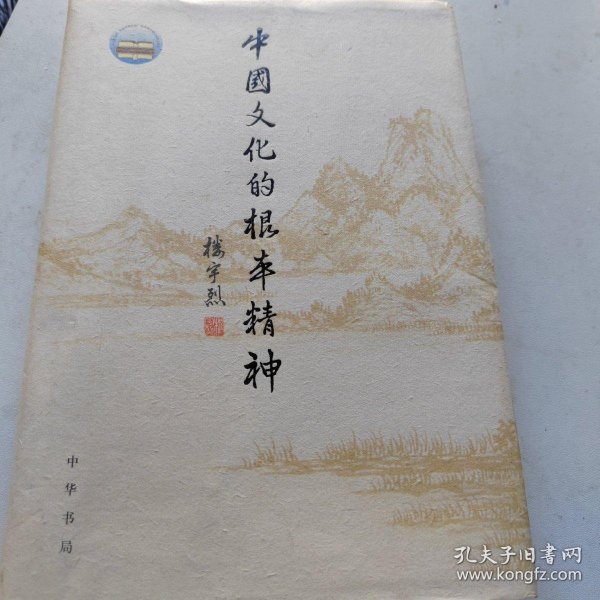 中國文化的根本精神
楼宇烈
中华书局
孔夫子旧书网
www.kongfz.com